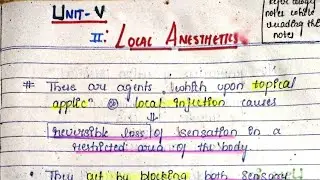 UNIT-V
II: LOCAL ANESTHETICS
notes while
reading the
notes
# These are agents, which upon topical
applicⁿ @ local injection causes
reversible loss of sensation in a
restricted area of the body.
They act by blocking both sensory